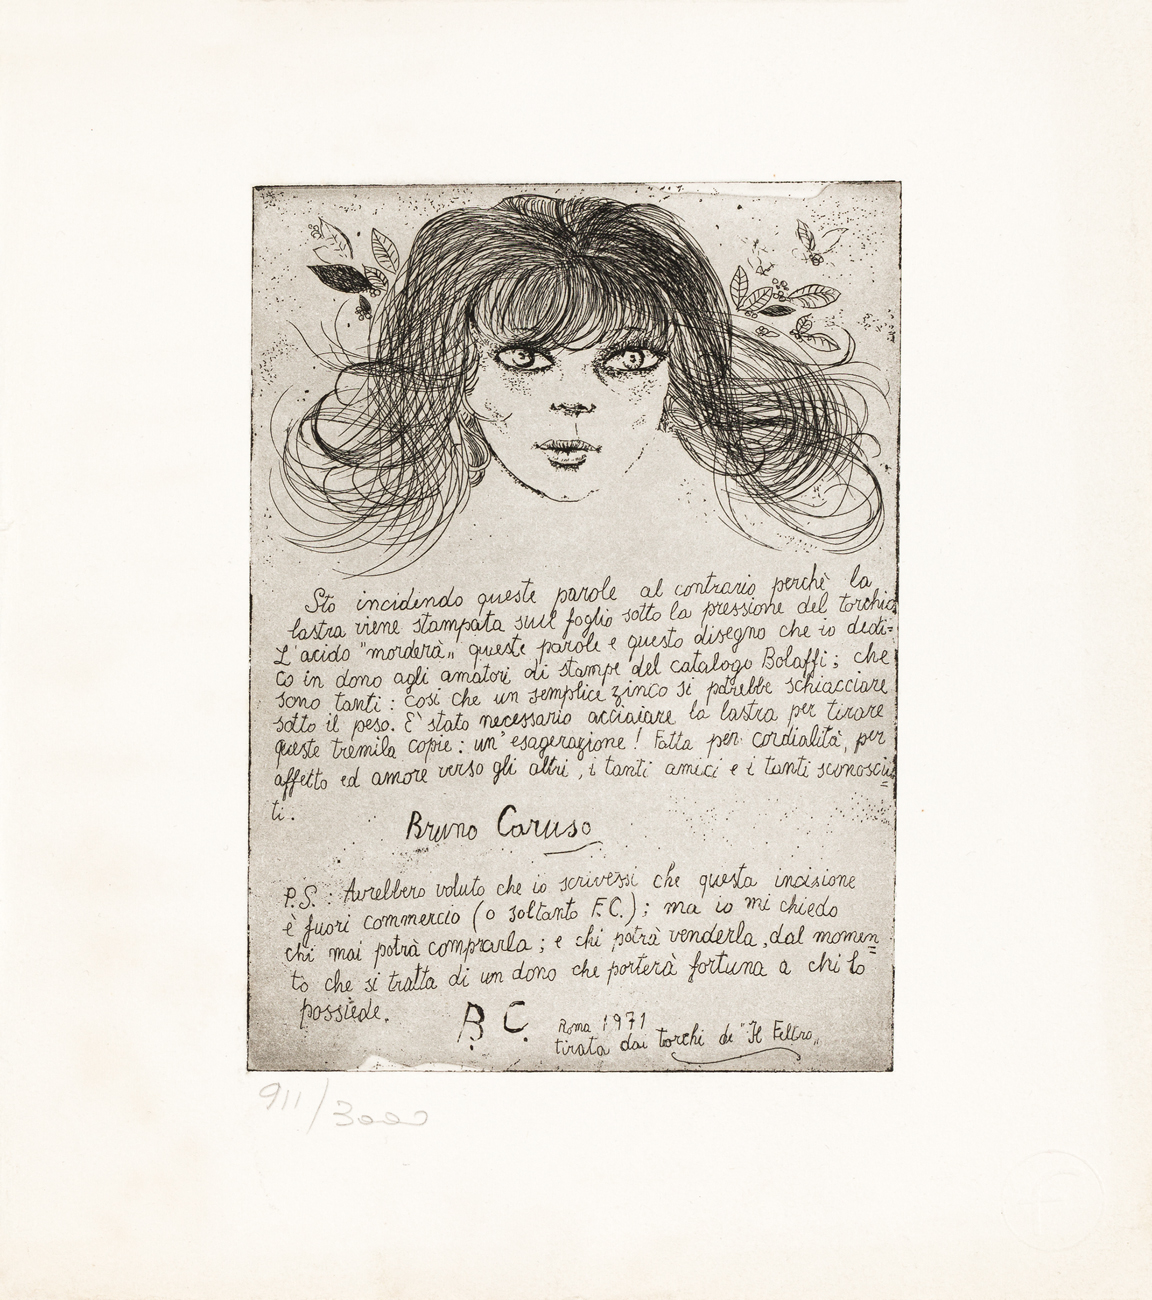 Sto incidendo queste parole al contrario perchè la
lastra viene stampata sull foglio sotto la pressione del torchio
L'acido "morderà„ queste parole e questo disegno che io dedi=
co in dono agli amatori di stampe del catalogo Bolaffi; che
sono tanti: così che un semplice zinco si potrebbe schiacciare
sotto il peso. E' stato necessario acciaiare la lastra per tirare
queste tremila copie: un'esagerazione! Fatta per cordialità, per
affetto ed amore verso gli altri, i tanti amici e i tanti sconosciu=
ti.
Bruno Caruso
P.S.: Avrebbero voluto che io scrivessi che questa incisione
è fuori commercio (o soltanto F.C.); ma io mi chiedo
chi mai potrà comprarla; e chi potrà venderla, dal momen=
to che si tratta di un dono che porterà fortuna a chi lo
possiede.
B. C.
Roma 1971
tirata dai torchi de "Il Feltro„
911/3000